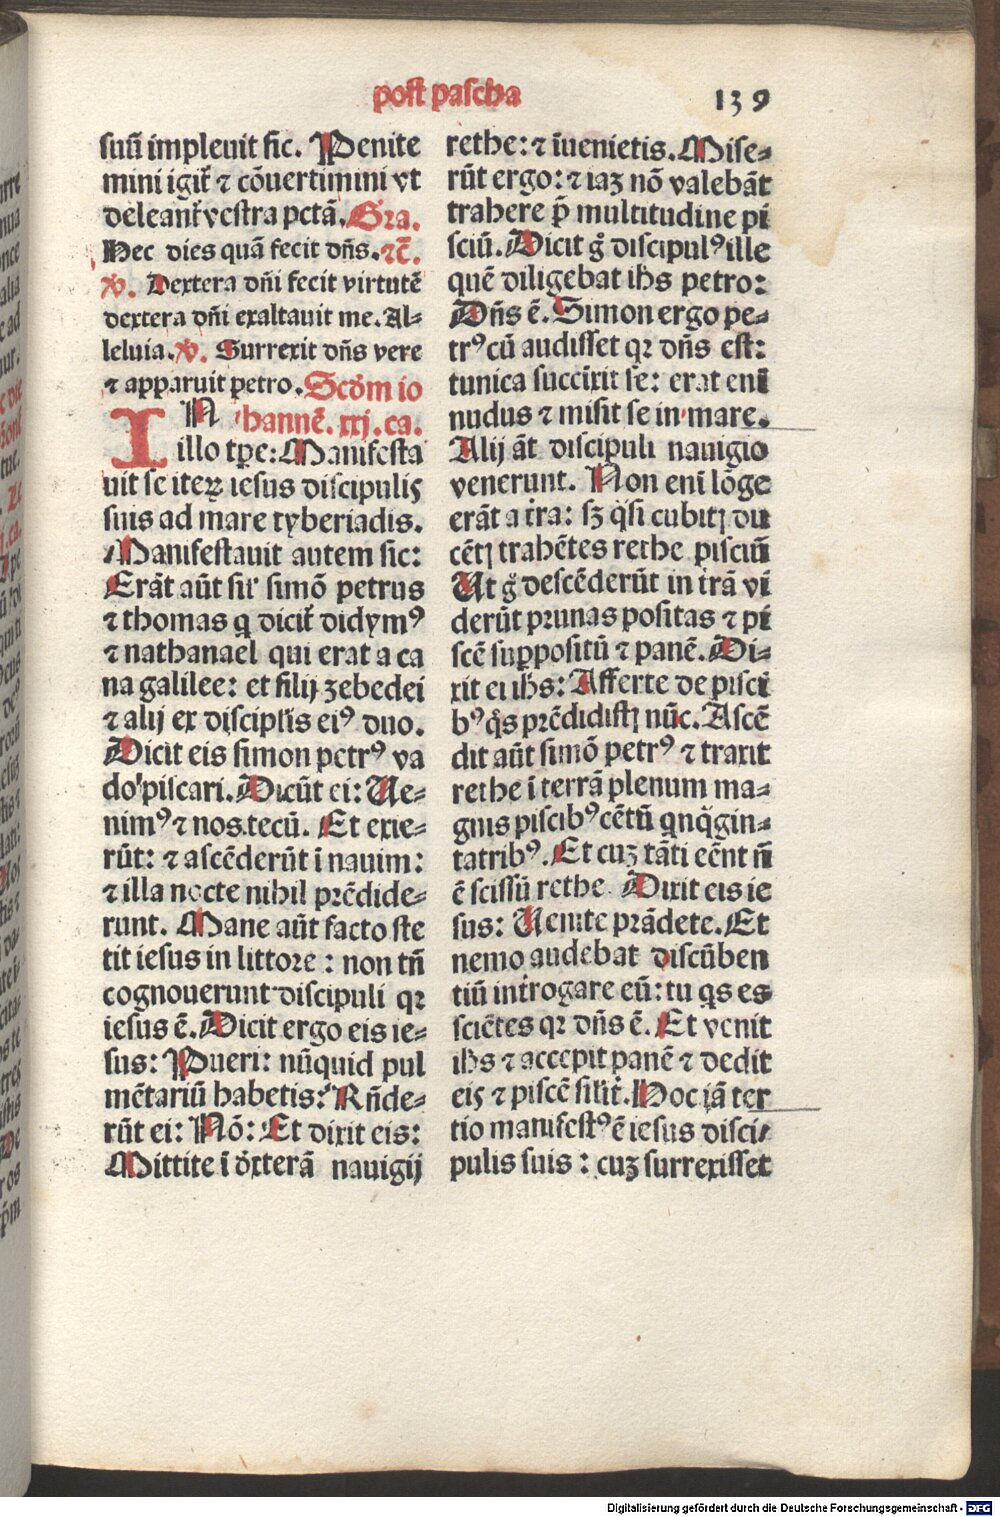 post pascha 139
suū impleuit sic. Penite
mini igit̄ ⁊ cōuertimini vt
deleant̄ vestra pctā. Gra.
Hec dies quā fecit dn̄s. ⁊c̄.
V. Dextera dn̄i fecit virtutē
dextera dn̄i exaltauit me. Al⸗
leluia. V. Surrexit dn̄s vere
⁊ apparuit petro. Scd̄m io
IN hannē. xxj. ca.
illo tp̄e: Manifesta
uit se iteꝝ iesus discipulis
suis ad mare tyberiadis.
Manifestauit autem sic:
Erāt aūt sil̄ simō petrus
⁊ thomas q̄ dicit̄ didymꝰ
⁊ nathanael qui erat a ca
na galilee: et filij zebedei
⁊ alij ex discipl̄is eiꝰ duo.
Dicit eis simon petrꝰ va
do piscari. Dicūt ei: Ue⸗
nimꝰ ⁊ nos tecū. Et exie⸗
rūt: ⁊ ascēderūt ī nauim:
⁊ illa nocte nihil prēdide⸗
runt. Mane aūt facto ste
tit iesus in littore: non tn̄
cognouerunt discipuli qꝛ
iesus ē. Dicit ergo eis ie⸗
sus: Pueri: nūquid pul
mētariū habetis? Rn̄de⸗
rūt ei: Nō: Et dixit eis:
Mittite ī dx̄terā nauigij
rethe: ⁊ īuenietis. Mise⸗
rūt ergo: ⁊ iaꝫ nō valebāt
trahere p̄ multitudine pi
sciū. Dicit g̊ discipulꝰ ille
quē diligebat ih̄s petro:
Dn̄s ē. Simon ergo pe⸗
trꝰ cū audisset qꝛ dn̄s est:
tunica succīxit se: erat enī
nudus ⁊ misit se in mare.
Alij āt discipuli nauigio
venerunt. Non enī lōge
erāt a t̄ra: sꝫ q̄si cubitꝭ du
cētꝭ trahētes rethe pisciū
Ut g̊ descēderūt in t̄rā vi
derūt prunas positas ⁊ pi
scē suppositū ⁊ panē. Di⸗
xit ei ih̄s: Afferte de pisci
bꝰ q̄s prēdidistꝭ nūc. Ascē
dit aūt simō petrꝰ ⁊ traxit
rethe ī terrā plenum ma⸗
gnis piscibꝰ cētū qn̄q̄gin⸗
tatribꝰ. Et cuꝫ tāti eēnt n̄
ē scissū rethe. Dixit eis ie
sus: Uenite prādete. Et
nemo audebat discūben
tiū int̄rogare eū: tu q̄s es
sciētes qꝛ dn̄s ē. Et venit
ih̄s ⁊ accepit panē ⁊ dedit
eis ⁊ piscē sil̄it̄. Hoc iā ter
tio manifestꝰ ē iesus disci⸗
pulis suis: cuꝫ surrexisset
Digitalisierung gefördert durch die Deutsche Forschungsgemeinschaft - DFG